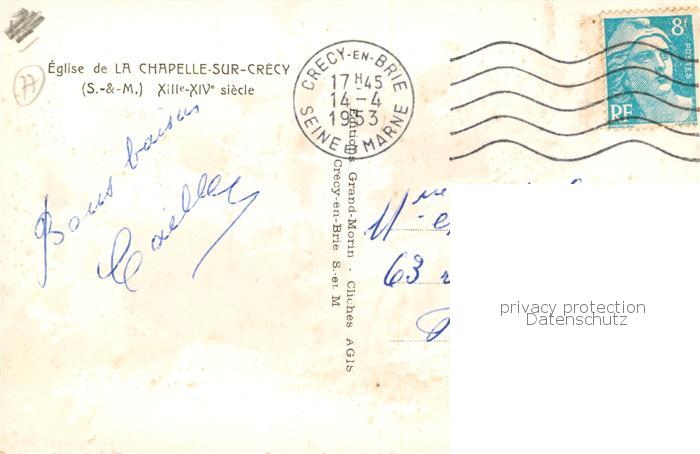 77
Église de LA CHAPELLE-SUR-CRÉCY
(S.-&-M.) XIIIe-XIVe siècle
Bons baisers
CRECY-EN-BRIE
17 H 45
14-4
1953
SEINE ET MARNE
8F
POSTES
RF
Editions Grand-Morin - Clichés AGIS
Crécy-en-Brie S.-et M
Mme
63
privacy protection
Datenschutz